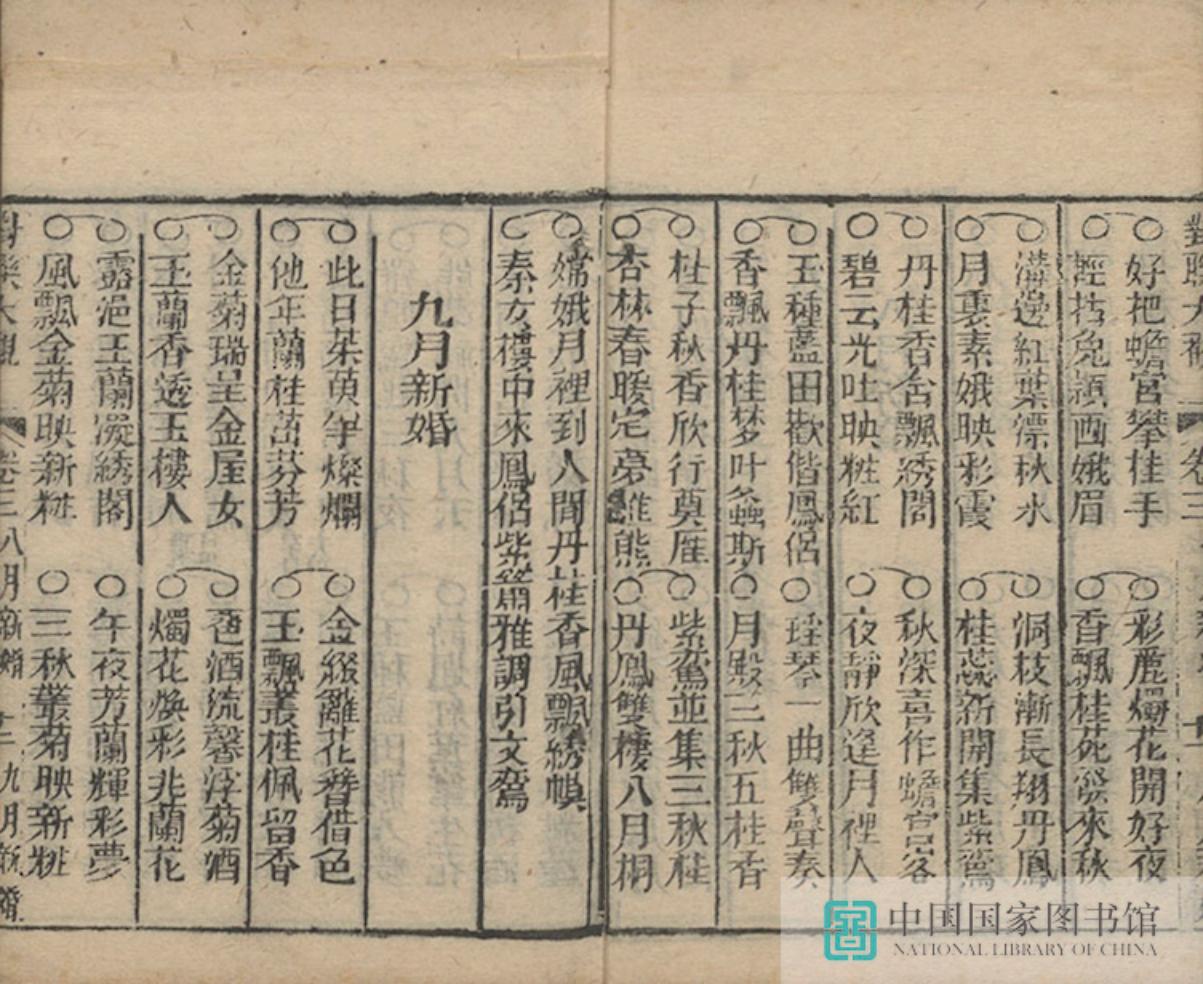 好把蟾宮攀桂手
彩麗燭花開好夜
輕拈兔穎画娥眉
香飄桂苑
來秋
溝邊紅葉漂秋水
洞枝漸長翔丹鳳
月裏素娥映彩霞
桂蕊新開集紫鸞
丹桂香含飄綉閣
秋深喜作蟾宮客
碧云光吐映粧紅
夜靜欣逢月裡人
玉種藍田歡偕鳳侶
瑶琴一曲雙聲奏
香飄丹桂梦叶螽斯
月殿三秋五桂香
桂子秋香欣行奠雁
紫鸞並集三秋桂
杏林春暖定夢維熊
丹鳳雙棲八月桐
嫦娥月裡到人間丹桂香風飄綉幌
秦女樓中來鳳侶紫簫雅調引文鸞
九月新婚
此日茱萸争燦爛
金綴籬花簪借色
他年蘭桂茁芬芳
玉飄叢桂佩留香
金菊瑞呈金屋女
卺酒流馨浮菊酒
玉蘭香透玉樓人
燭花煥彩兆蘭花
露浥玉蘭凝綉閣
午夜芳蘭輝彩夢
風飄金菊映新粧
三秋叢菊映新粧
卷三
八月新婚
九月新婚
中国国家图书馆
NATIONAL LIBRARY OF CHINA